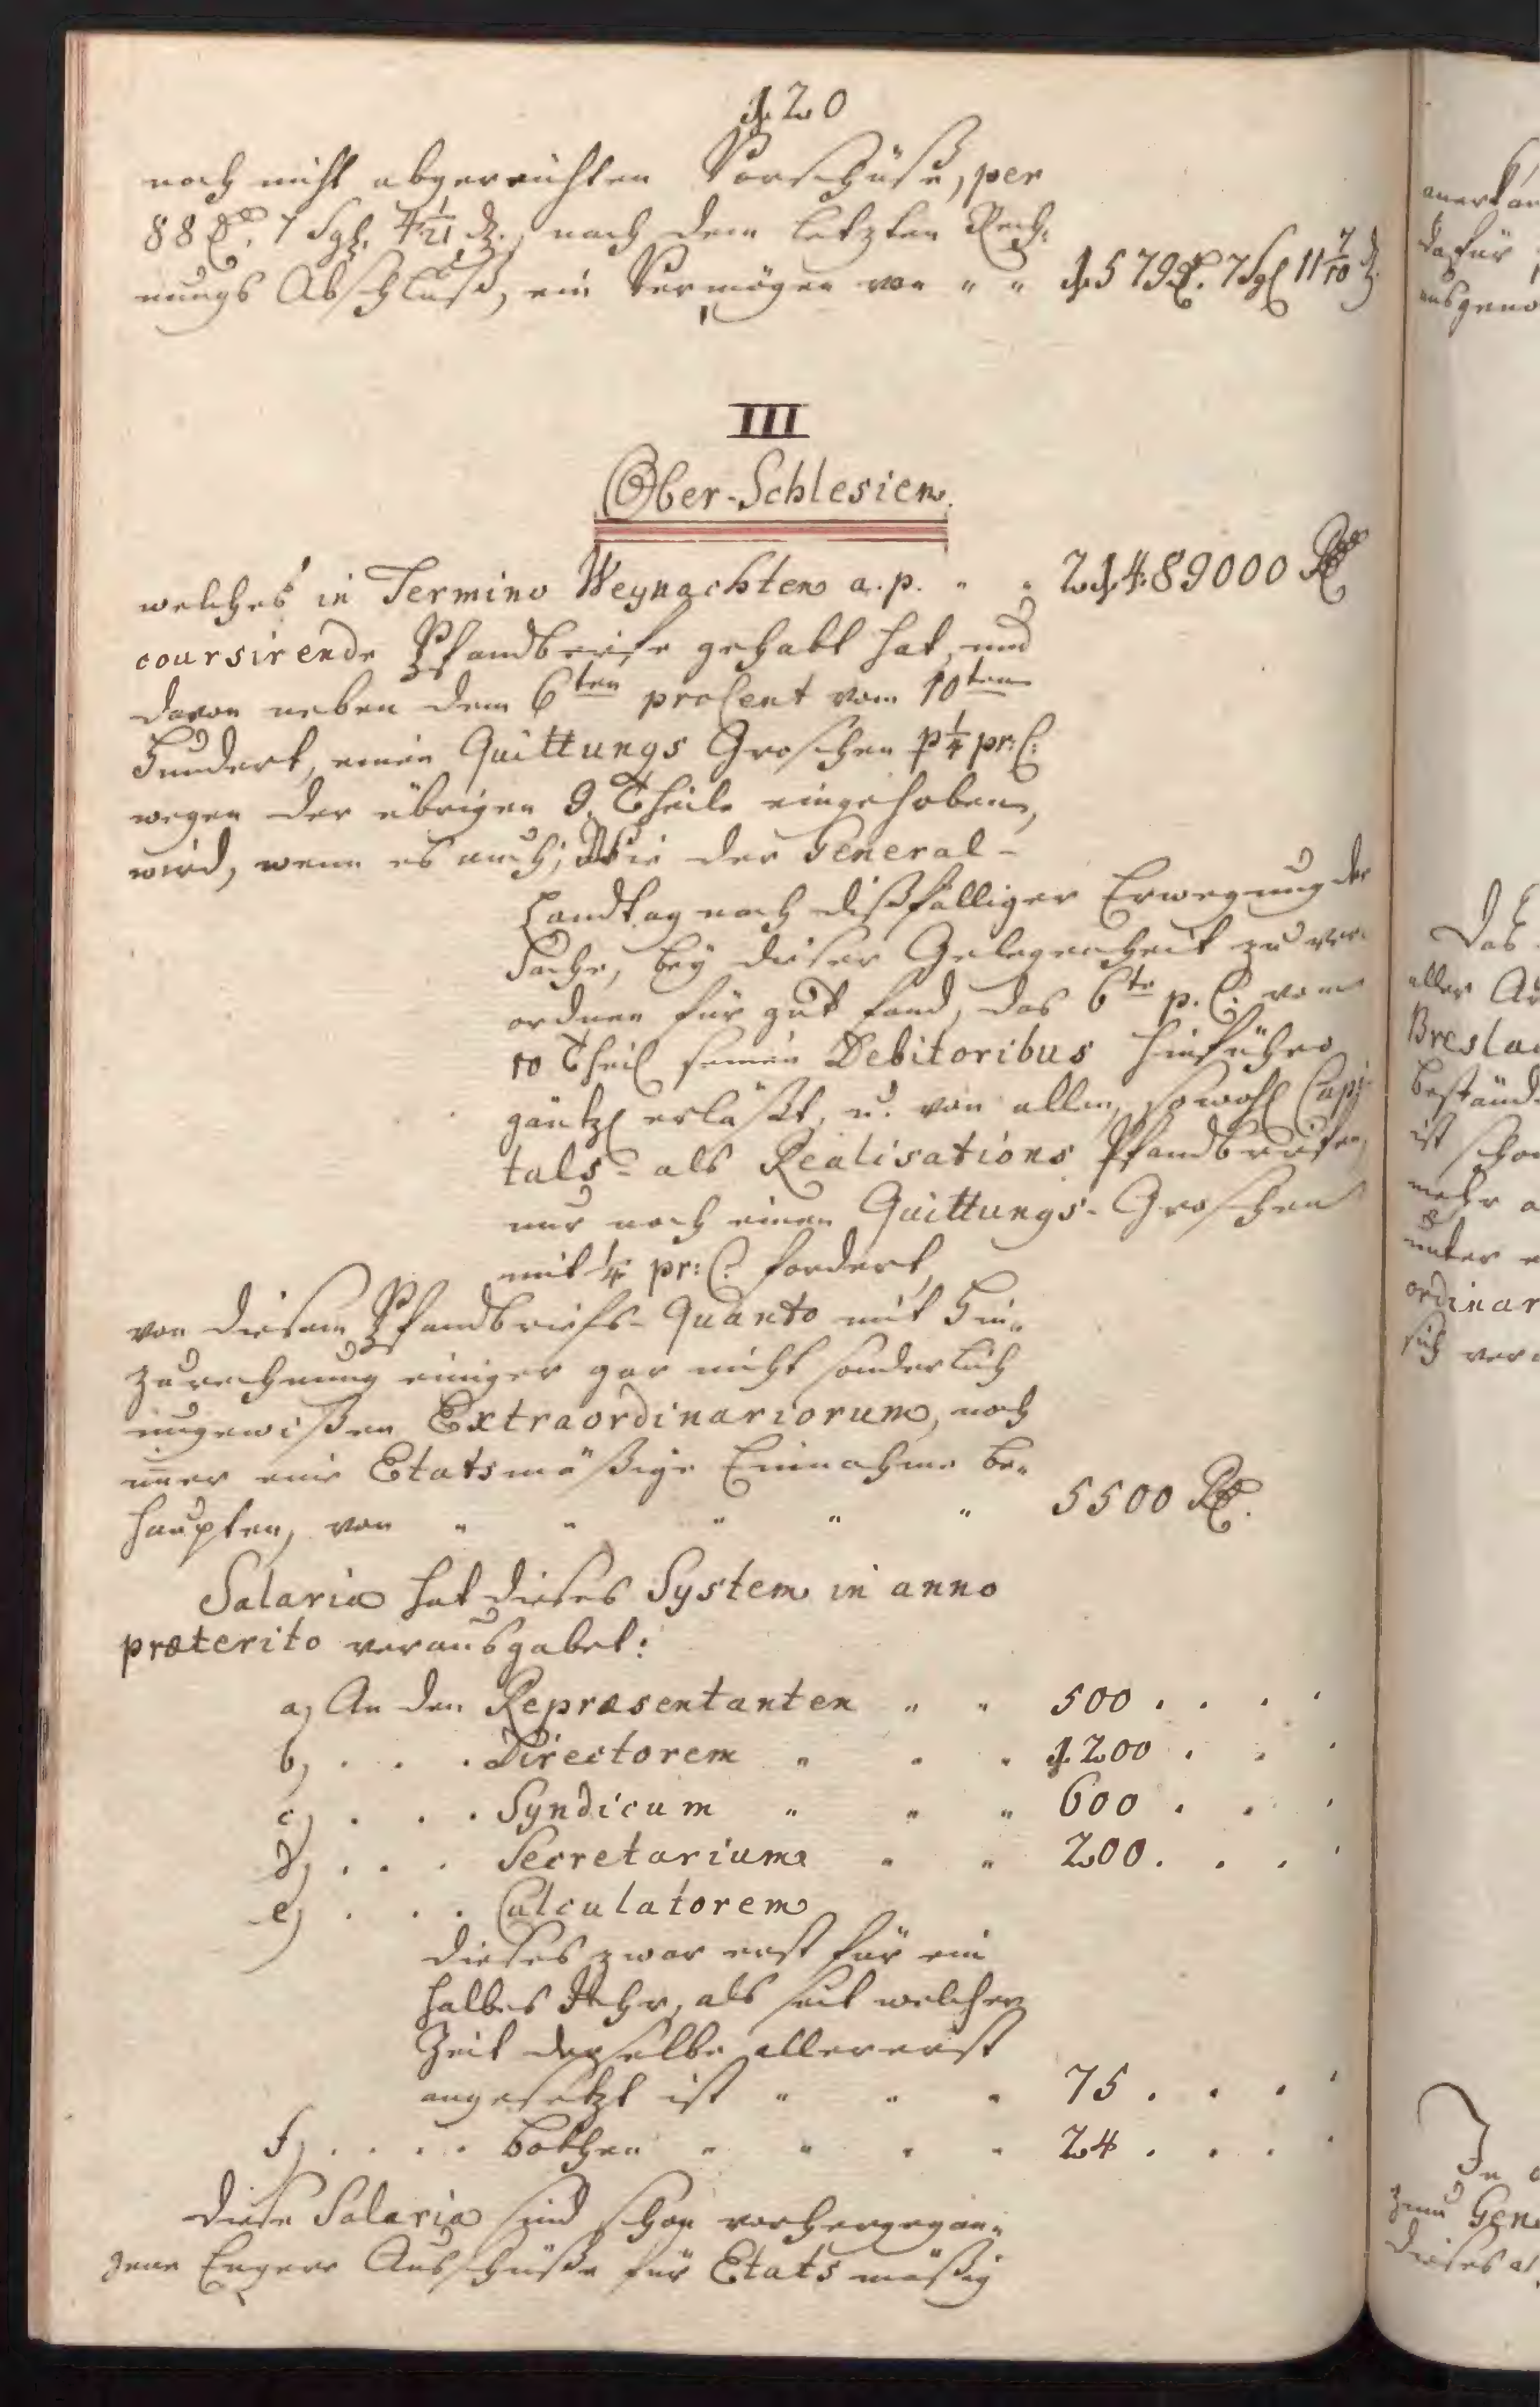 120
noch nicht abgereichten Vorschüße, per
88 Rt. 7 Sgl. 4 1/21 d., nach dem letzten Rech-
nungs Abschluß, ein Vermögen von " " 1579 Rt. 7 Sgl 11 7/10 d.
III
Ober-Schlesien.
welches in Termino Weynachten a. p. " " 21489000 Rt
coursirende Pfandbriefe gehabt hat, und
davon neben dem 6ten proCent vom 10ten
Hundert, einen Quittungs Groschen p 1/4 pr. C.
wegen der übrigen 9. Theile eingehoben,
wird, wenn es auch, Wie der General-
Landtag nach dißfälliger Erwegung der
Sache, bey dieser Gelegenheit zu ver-
ordnen für gut fand, das 6te p. C. vom
10 Theil seinen Debitoribus hinführo
gäntzl erläßt, u. von allen, sowohl Capi-
tals- als Realisations Pfandbriefen,
nur noch einen Quittungs-Groschen
mit 1/4 pr: C. fordert,
von diesem Pfandbriefs-Quanto mit Hin-
zurechnung einiger gar nicht sonderlich
ungewißen Extraordinariorum, noch
imer eine Etatsmäßige Einnahme be-
haupten, von " " " " " 5500 Rt.
Salaria hat dieses System in anno
præterito verausgabet:
a, An den Repræsentanten " " 500 . . . .
b, . . . Directorem " " " 1200 . . .
c, . . . Syndicum " " " 600 . . .
d, . . . Secretarium " " 200 . . . .
e, . . . Calculatorem
dieses zwar erst für ein
halbes Jahr, als seit welcher
Zeit derselbe allererst
angesetzt ist " " " 75 . . . .
f, . . . . Bothen " " " " 24 . . . .
Diese Salaria sind schon vorhergegan-
gene Engere Ausschüße für Etats mäßig